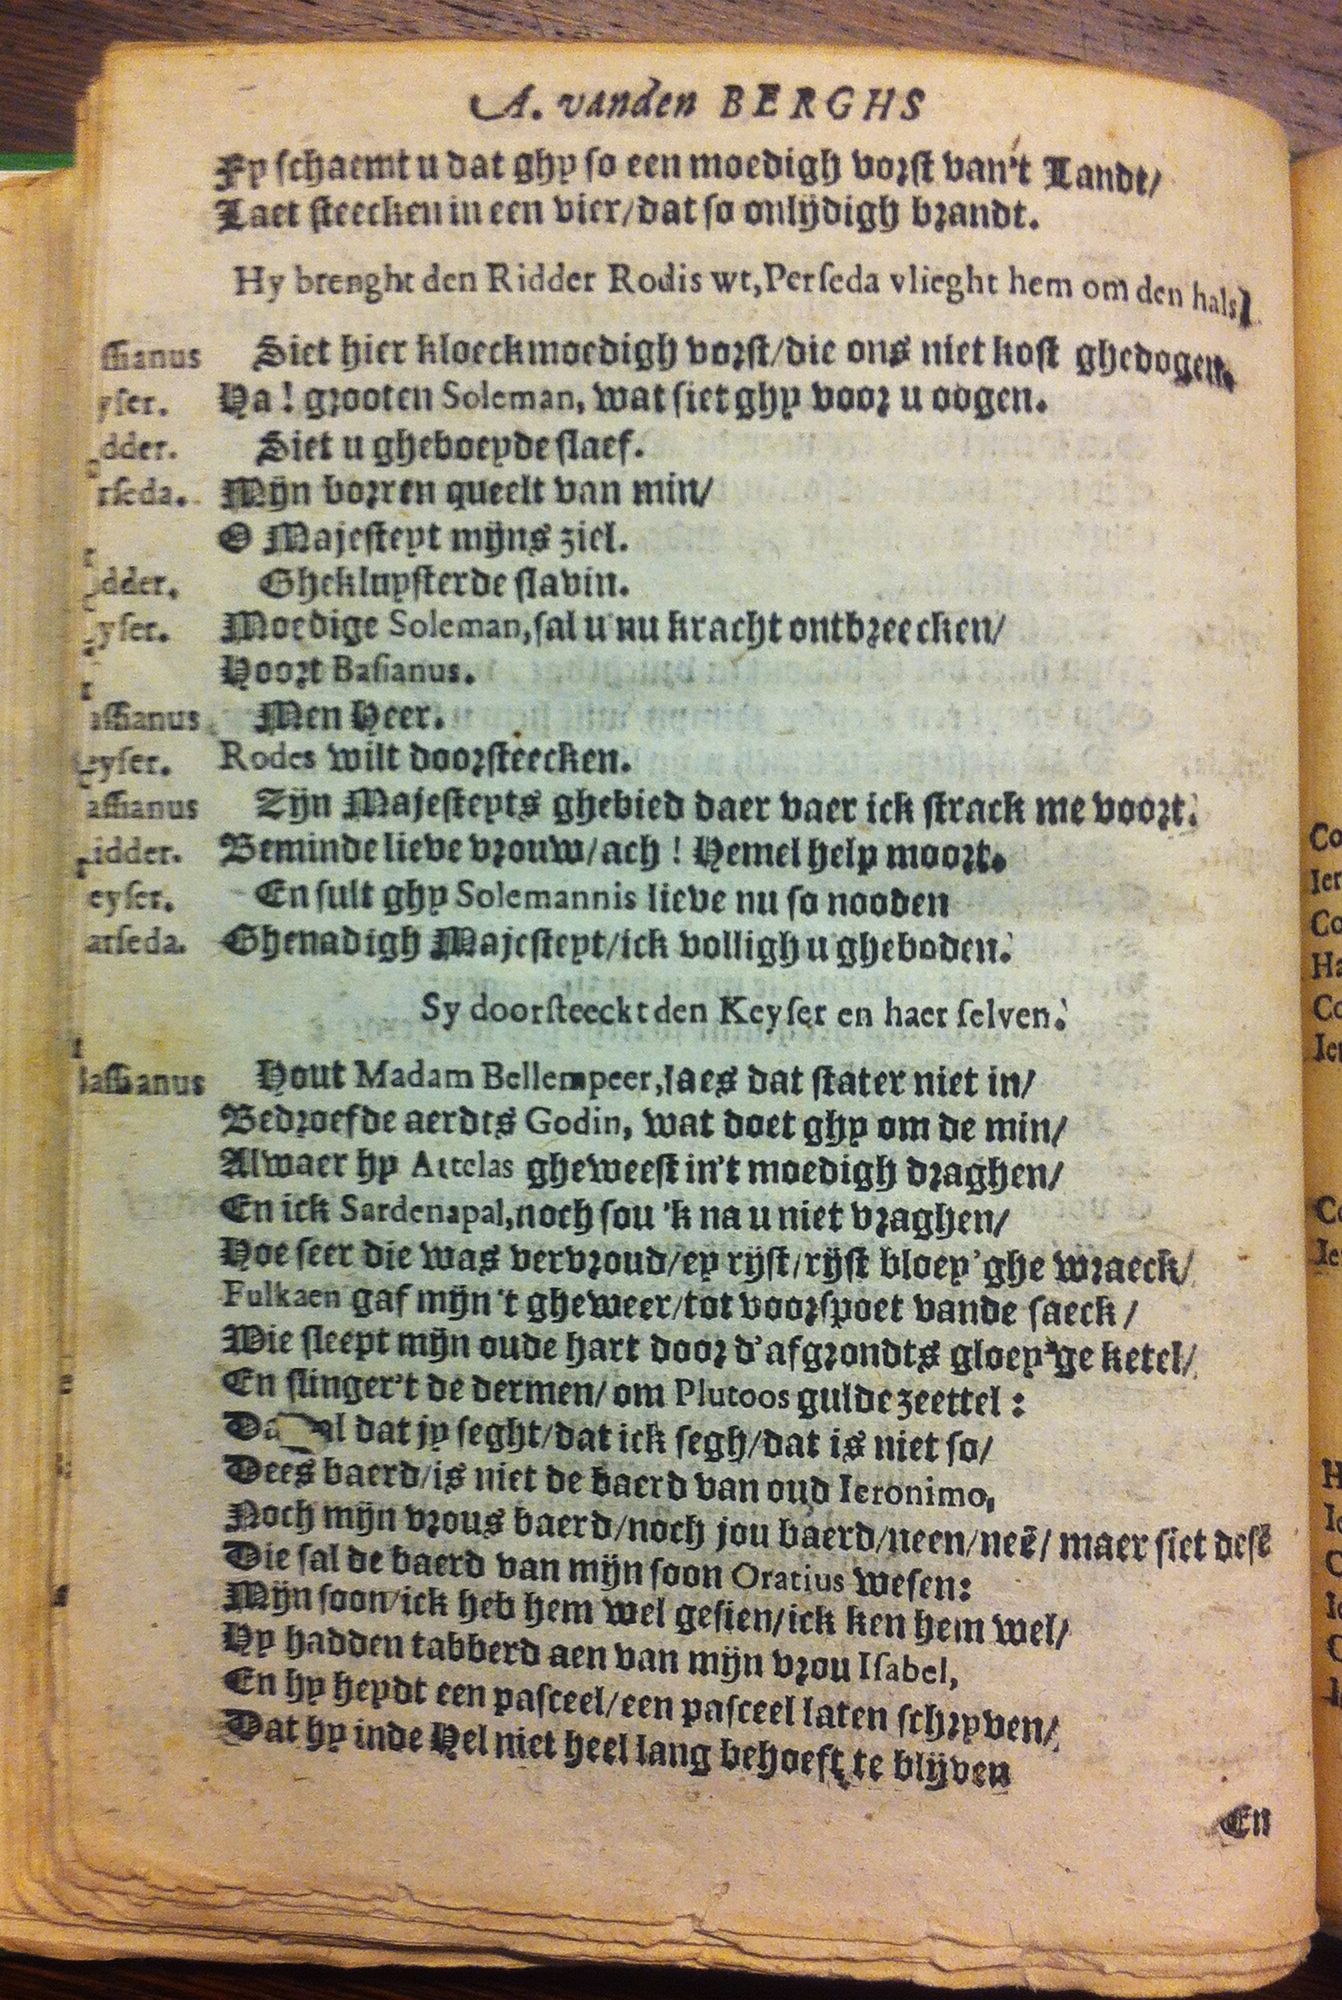 A. vanden BERGHS
Fy schaemt u dat ghy so een moedigh vorst van't Landt/
Laet steecken in een vier/dat so onlijdigh brandt.
Hy brenght den Ridder Rodis wt, Perseda vlieght hem om den hals.
ssianus Siet hier kloeckmoedigh vorst/die ons niet kost ghedogen.
yser. Ha! grooten Soleman, wat siet ghy voor u oogen.
dder. Siet u gheboeyde slaef.
rseda. Mijn borren queelt van min/
O Majesteyt mijns ziel.
dder. Ghekluysterde slavin.
yser. Moedige Soleman, sal u nu kracht ontbreecken/
Hoort Basianus.
assianus Men Heer.
eyser. Rodes wilt doorsteecken.
assianus Zijn Majesteyts ghebied daer vaer ick strack me voort.
idder. Beminde lieve vrouw/ach! Hemel help moort.
eyser. En sult ghy Solemannis lieve nu so nooden
arseda. Ghenadigh Majesteyt/ick volligh u gheboden.
Sy doorsteeckt den Keyser en haer selven.
Bassianus Hout Madam Bellempeer, laes dat stater niet in/
Bedroefde aerdts Godin, wat doet ghy om de min/
Alwaer hy Attelas gheweest in't moedigh draghen/
En ick Sardenapal, noch sou 'k na u niet vraghen/
Hoe seer die was vervroud/ey rijst/rijst bloey'ghe wraeck/
Fulkaen gaf mijn 't gheweer/tot voorspoet vande saeck/
Die sleept mijn oude hart door d'afgrondts gloey'ge ketel/
En slinger't de dermen/om Plutoos gulde zeettel:
dat jy seght/dat ick segh/dat is niet so/
Dees baerd/is niet de baerd van oud Ieronimo,
Noch mijn vrous baerd/noch jou baerd/neen/neē/maer siet desē
Die sal de baerd van mijn soon Oratius wesen:
Mijn soon/ick heb hem wel gesien/ick ken hem wel/
Hy hadden tabberd aen van mijn vrou Isabel,
En hy heydt een pasceel/een pasceel laten schryven/
Dat hy inde Hel niet heel lang behoeft te blijven
En